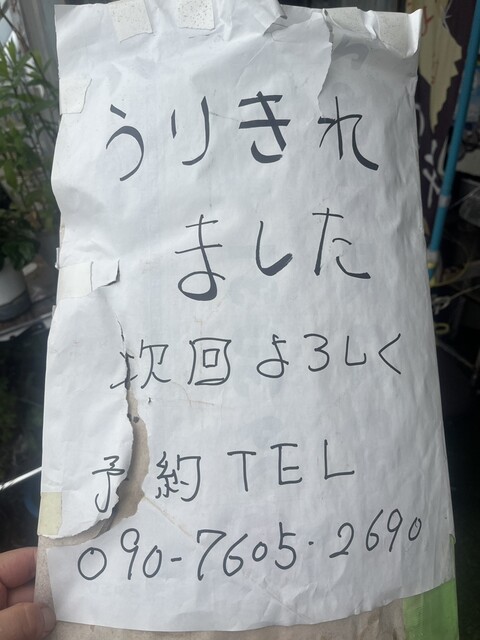 うりきれ
ました
次回よろしく
予約TEL
090-7605-2690